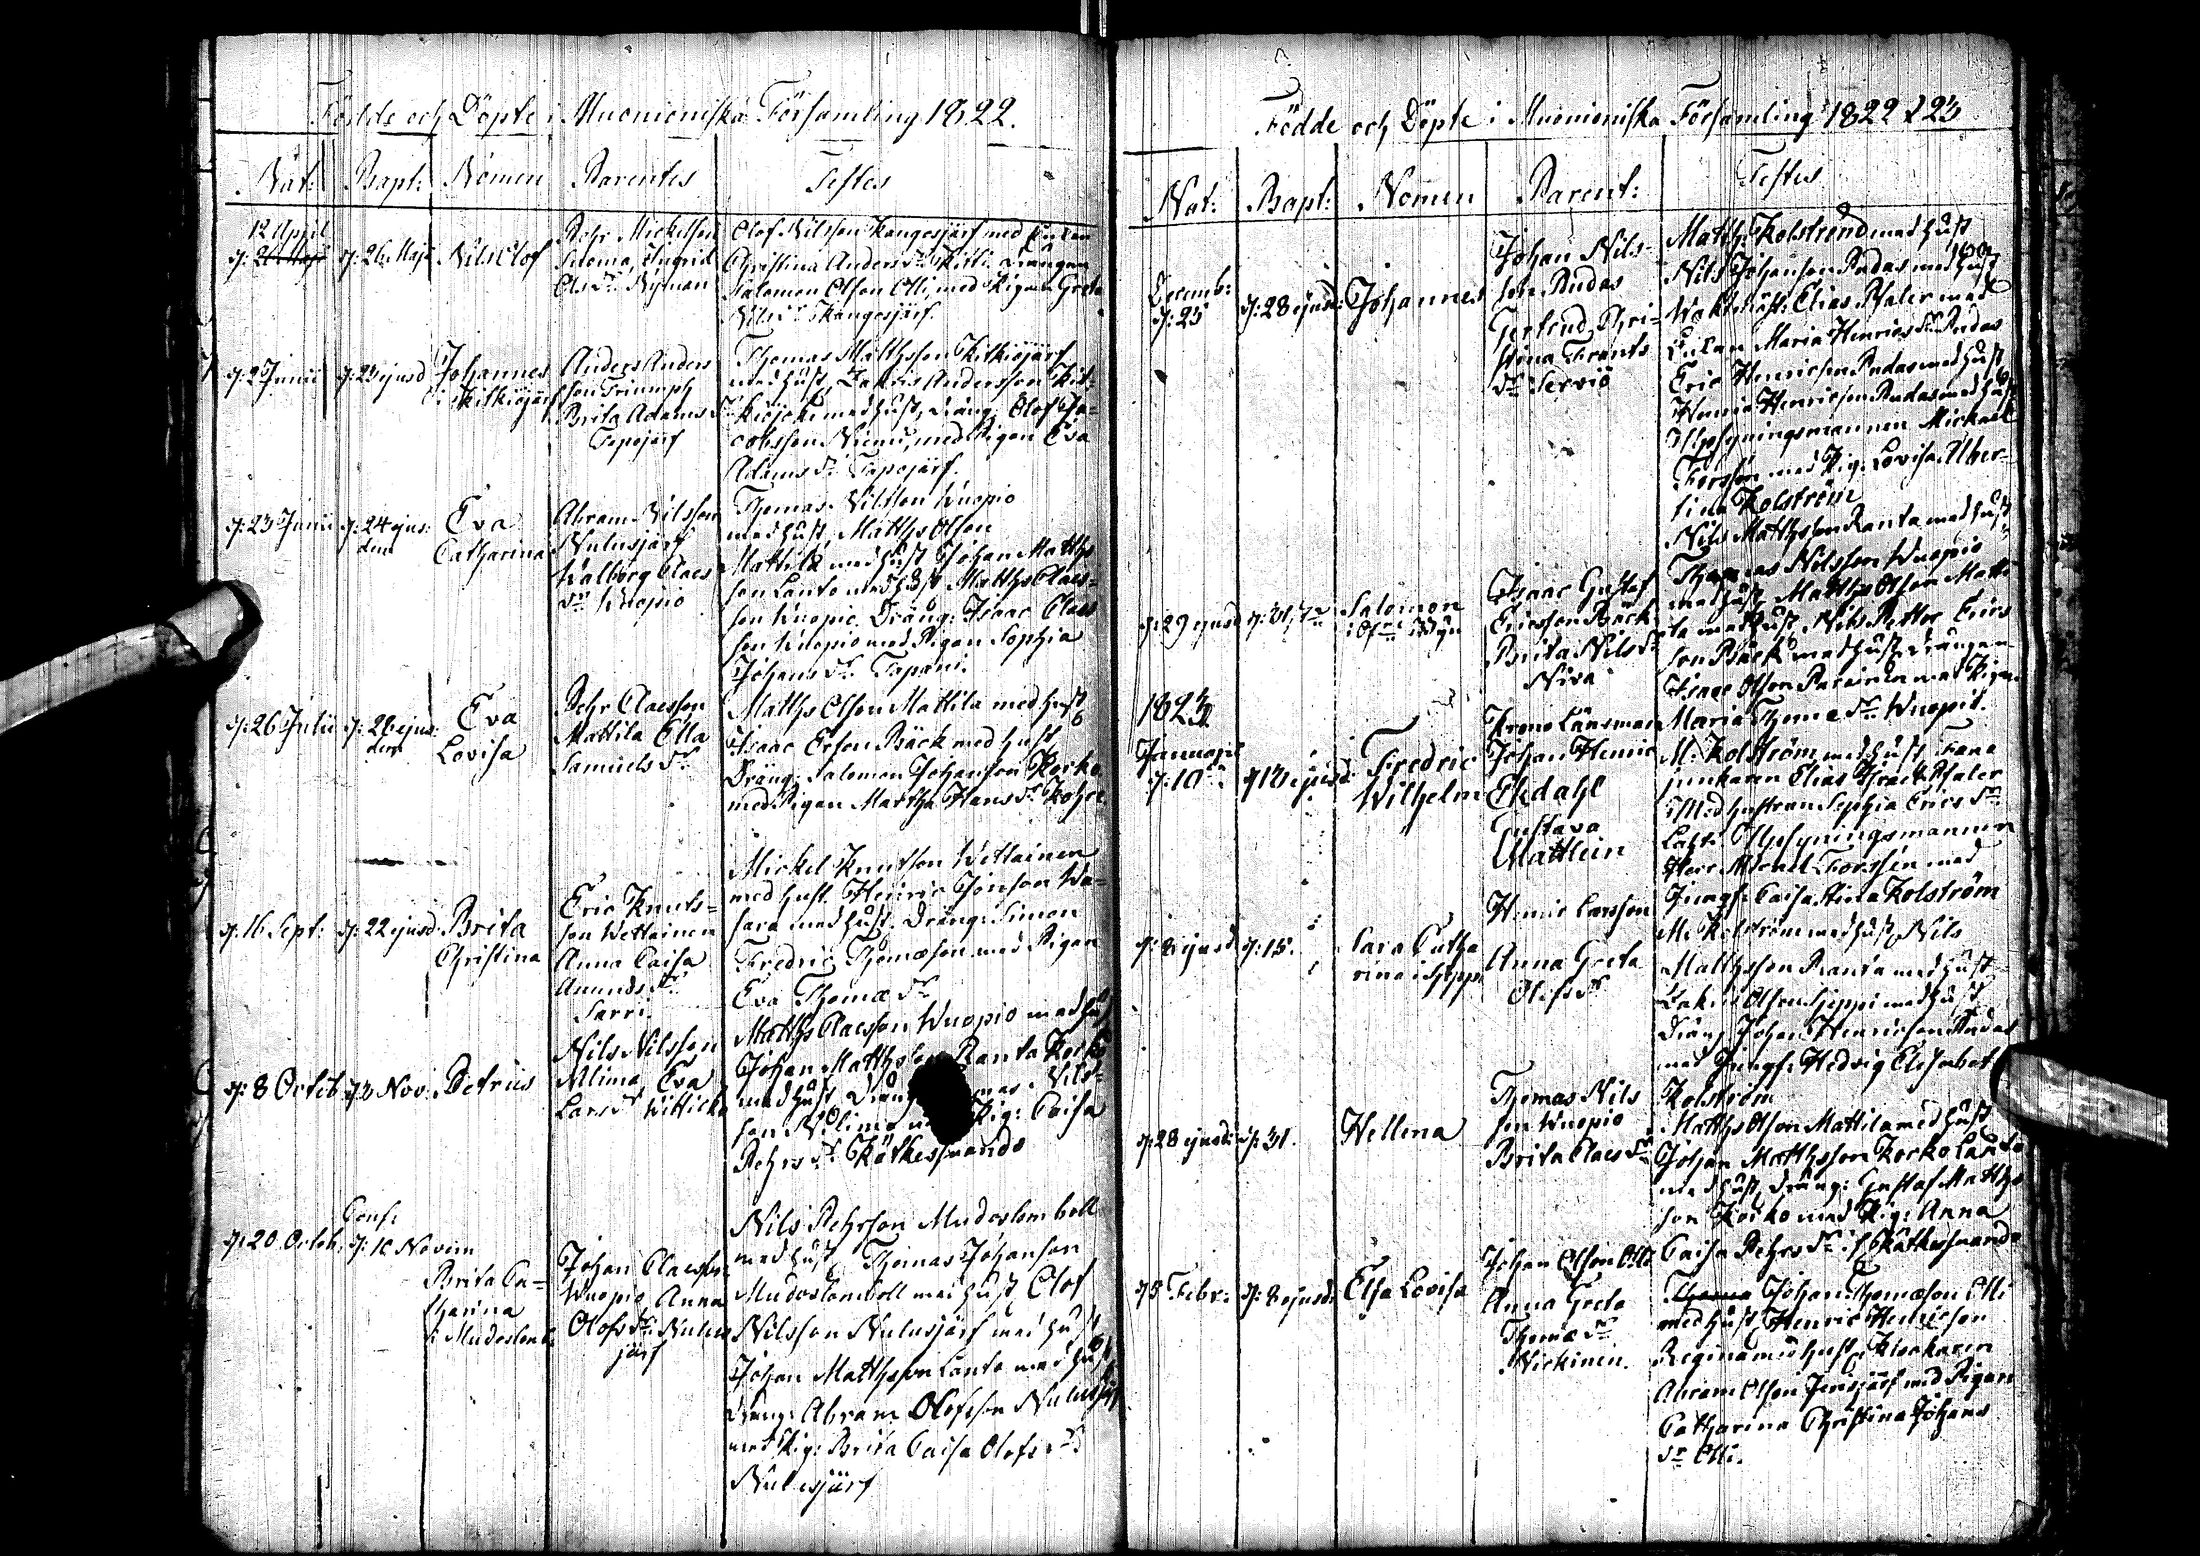 Födde och Döpte i Muonioniska Församling 1822.
Nat: Bapt: Nomen Parentes Testes
12 April
d: 26 Maji d: 26 Maji Nils Olof
Pehr Mickelson
Saloma, Ingrid
Ols dr. Nyman
Olof Nilsson Kangosjärf med
Christina Anders dr. Kitti Drängen
Salomon Olsson Olli, med Pigan Greta
Nils dr Kangosjärf.
d: 2 Junii d: 23 ejusd Johannes
i Kitkiöjärf
Anders Anders
son Triumph
Brita Adams dr
Tepojärf
Thomas Matthsson Kitkiöjärf
med hust, Zakris Andersson Kit-
kiöjoki med hust, Dräng: Olof Ja-
cobsson Niemi, med Pigan Eva
Adams dr. Tapojärf.
d: 23 Junii d: 24 ejus:
dem
Eva
Catharina
Abram Nilsson
Nulusjärf
Walborg Claes
dr Wuopio
Thomas Nilsson Wuopio
med hust, Matths Olsson
Mattila med hust Johan Matths
son Lanto med hust Matths Claes-
son Wuopio. Dräng: Isaac Claes
son Wuopio med Pigan Sophia
Johans dr. Tapani.
d: 26 Julii d: 28 ejus:
dem
Eva
Lovisa
Pehr Claesson
Mattila Ella
Samuels dr
Matths Olsson Mattila med hust
Isaac Erson Bäck med hust
Dräng: Salomon Johansson Korko
med Pigan Martha Hans dr
d: 16 Sept: d: 22 ejusd Brita
Christina
Eric Knuts=
son Wettainen
Anna Caisa
Amunds dr
Sarri.
Mickel Knutson Wettainen
med hust. Henric Jonson Wa-
sara med hust. Dräng: Simon
Fredric Thomæson med Pigan
Eva Thomæ dr
d: 8 Octob d: 3 Nov: Petrus
Nils Nilsson
Nlima, Eva
Lars dr Wittick
Matths Claesson Wuopio med hust
Johan Matthsson Ranta Korko
med hust, Dräng Nils-
son Nlima Pig: Caisa
Pehrs dr. Kätkesuando
Conf:
d: 20 Octob: d: 10 Novem
Brita Ca-
tharina
i Mudoslomb.
Johan Claesson
Wuopio, Anna
Olofs dr. Nulus
järf
Nils Pehrson Mudoslomboll
med hust Thomas Johanson
Mudoslomboll med hust Olof
Nilsson Nulusjärf med hust
Johan Matthsson Lanto med hust
Dräng: Abram Olofsson Nulusjärf
med Pig: Brita Caisa Olofs dr
Nulusjärf
Födde och Döpte i Muonioniska Församling 1822 & 23
Nat: Bapt: Nomen Parent: Testes
Decemb:
d: 25 d: 28 ejusd: Johannes
Johan Nils-
son Rudas
Gertrud Chri-
stina Frants
dr Servio
Matth: Kolström med hust
Nils Johansson Rudas med hust
Waktmäst: Elias Pfaler med
Enkan Maria Henrics dr Rudas
Eric Henricson Rudas med hust
Henric Henricson Rudas med hust
Uppsyningsmannen Mickael
Forssén med Pig: Lovisa Alber-
tina Kolström
d: 29 ejusd d: 31, Salomon
Isaac Gustaf
Ericsson Bäck
Brita Nils dr
Niva
Nils Matthsson Ranta med hust
Thomas Nilsson Wuopio
med hust Matths Olsson Matti
la med hust, Nils Petter Erics
son Bäck med hust Drängen
Isaac Olsson med Pigan
Maria Thomæ dr Wuopio.
1823
Januarii
d: 10 d: 13 ejusd: Fredric
Wilhelm
Krono Länsman
Johan Henric
Ekdahl
Gustava
Mattlin
M: Kolström med hust Fane
junkaren Elias Pfaler
Med hustrun Sophia Erics dr
Uppsyningsmannen
Herr Michael Forssén med
Jungf: Caisa Stina Kolström
d: 8 ejusd d: 15. Cara Catha
rina
Henric Larsson
Anna Greta
Olofs dr
M: Kolström med hust, Nils
Matthsson Ranta med hust
Zakris Olsson med hust
Dräng Johan Henricsson Rudas
med Jungf: Hedvig Elisabet
Kolström
d: 28 ejusd: d: 31. Hellena
Thomas Nils
son Wuopio
Brita Claes dr
Matths Olsson Mattila med hust
Johan Matthsson Korko Lanto
med hust, Dräng: Gustaf Matths
son Korko med Pig: Anna
Caisa Pehrs dr. Kätkesuando
d 5 Febr: d: 8 ejusd: Elsa Lovisa
Johan Olsson Olli
Anna Greta
Thomæ dr
Niskinen.
Thoma Johan Thomæson Olli
med hust, Henric Henricson
Regina med hust, Klockaren
Abram Olsson Jerisjärf med Pigan
Catharina Christina Johans
dr Olli.